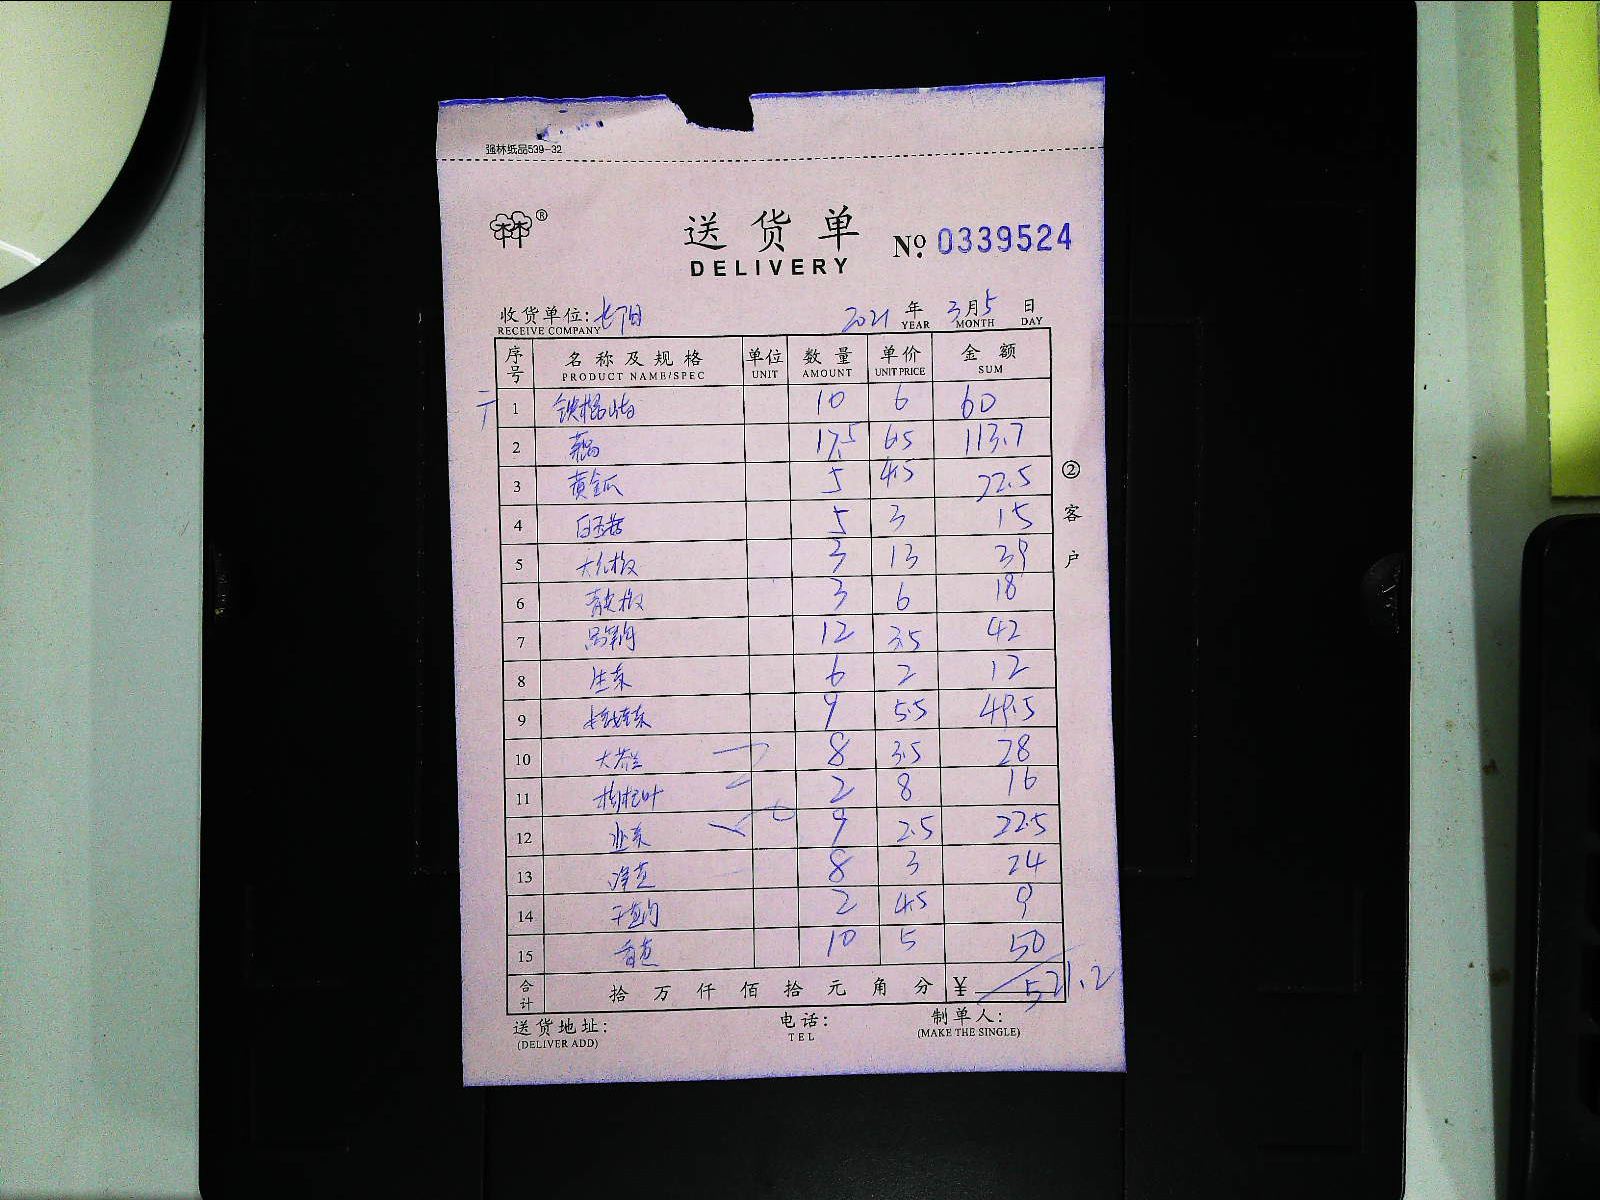 强林纸品539-32
® 送货单 № 0339524
DELIVERY
收货单位: 2021 年 3 月 5 日
RECEIVE COMPANY YEAR MONTH DAY
序号 名称及规格 单位 数量 单价 金额
PRODUCT NAME/SPEC UNIT AMOUNT UNIT PRICE SUM
1 10 6 60
2 藕 17.5 6.5 113.7
3 黄金瓜 5 4.5 22.5
4 白玉菇 5 3 15
5 3 13 39
6 青尖椒 3 6 18
7 12 3.5 42
8 生菜 6 2 12
9 9 5.5 49.5
10 8 3.5 28
11 枸杞叶 2 8 16
12 9 2.5 22.5
13 8 3 24
14 2 4.5 9
15 10 5 50
合计 拾万仟佰拾元角分 ¥ 521.2
② 客户
送货地址: 电话: 制单人:
(DELIVER ADD) TEL (MAKE THE SINGLE)